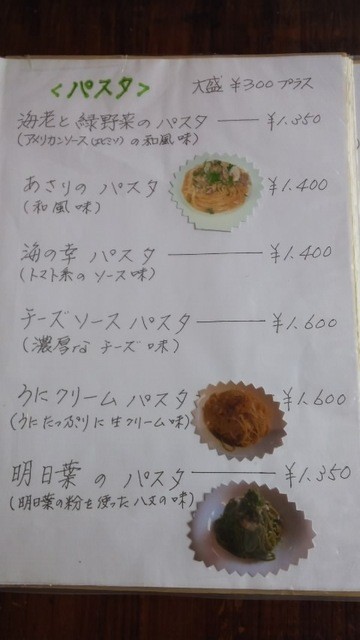 <パスタ>
大盛 ¥300プラス
海老と緑野菜のパスタ ¥1.350
(アメリカンソース の和風味)
あさりの パスタ ¥1.400
(和風味)
海の幸 パスタ ¥1.400
(トマト系の ソース味)
チーズソースパスタ ¥1.600
(濃厚な チーズ味)
うにクリーム パスタ ¥1.600
(うにたっぷりに生クリーム味)
明日葉 の パスタ ¥1.350
(明日葉の粉を使った八丈の味)